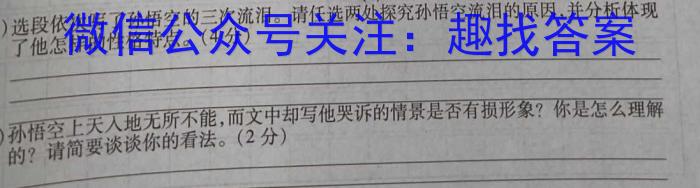 )选段依 了孙悟空的三次流泪。请任选两处探究孙悟空流泪的原因,并分析体现
了他怎 的性格特点。(4分)
微信公众号关注:趣找答案
)孙悟空上天入地无所不能,而文中却写他哭诉的情景是否有损形象?你是怎么理解
的?请简要谈谈你的看法。(2分)